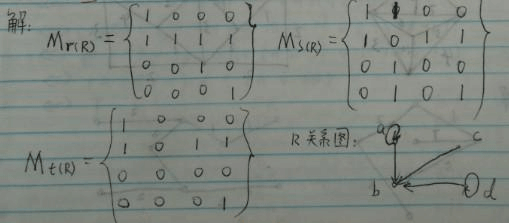 解:
M r(R) = { 1 0 0 0
1 1 1 1
0 0 1 0
0 0 0 1 }
M s(R) = { 1 1 0 0
1 0 1 1
0 1 0 0
0 1 0 1 }
M t(R) = { 1 0 0 0
1 0 1 1
0 0 0 0
0 0 0 1 }
R关系图:
a
c
b
d